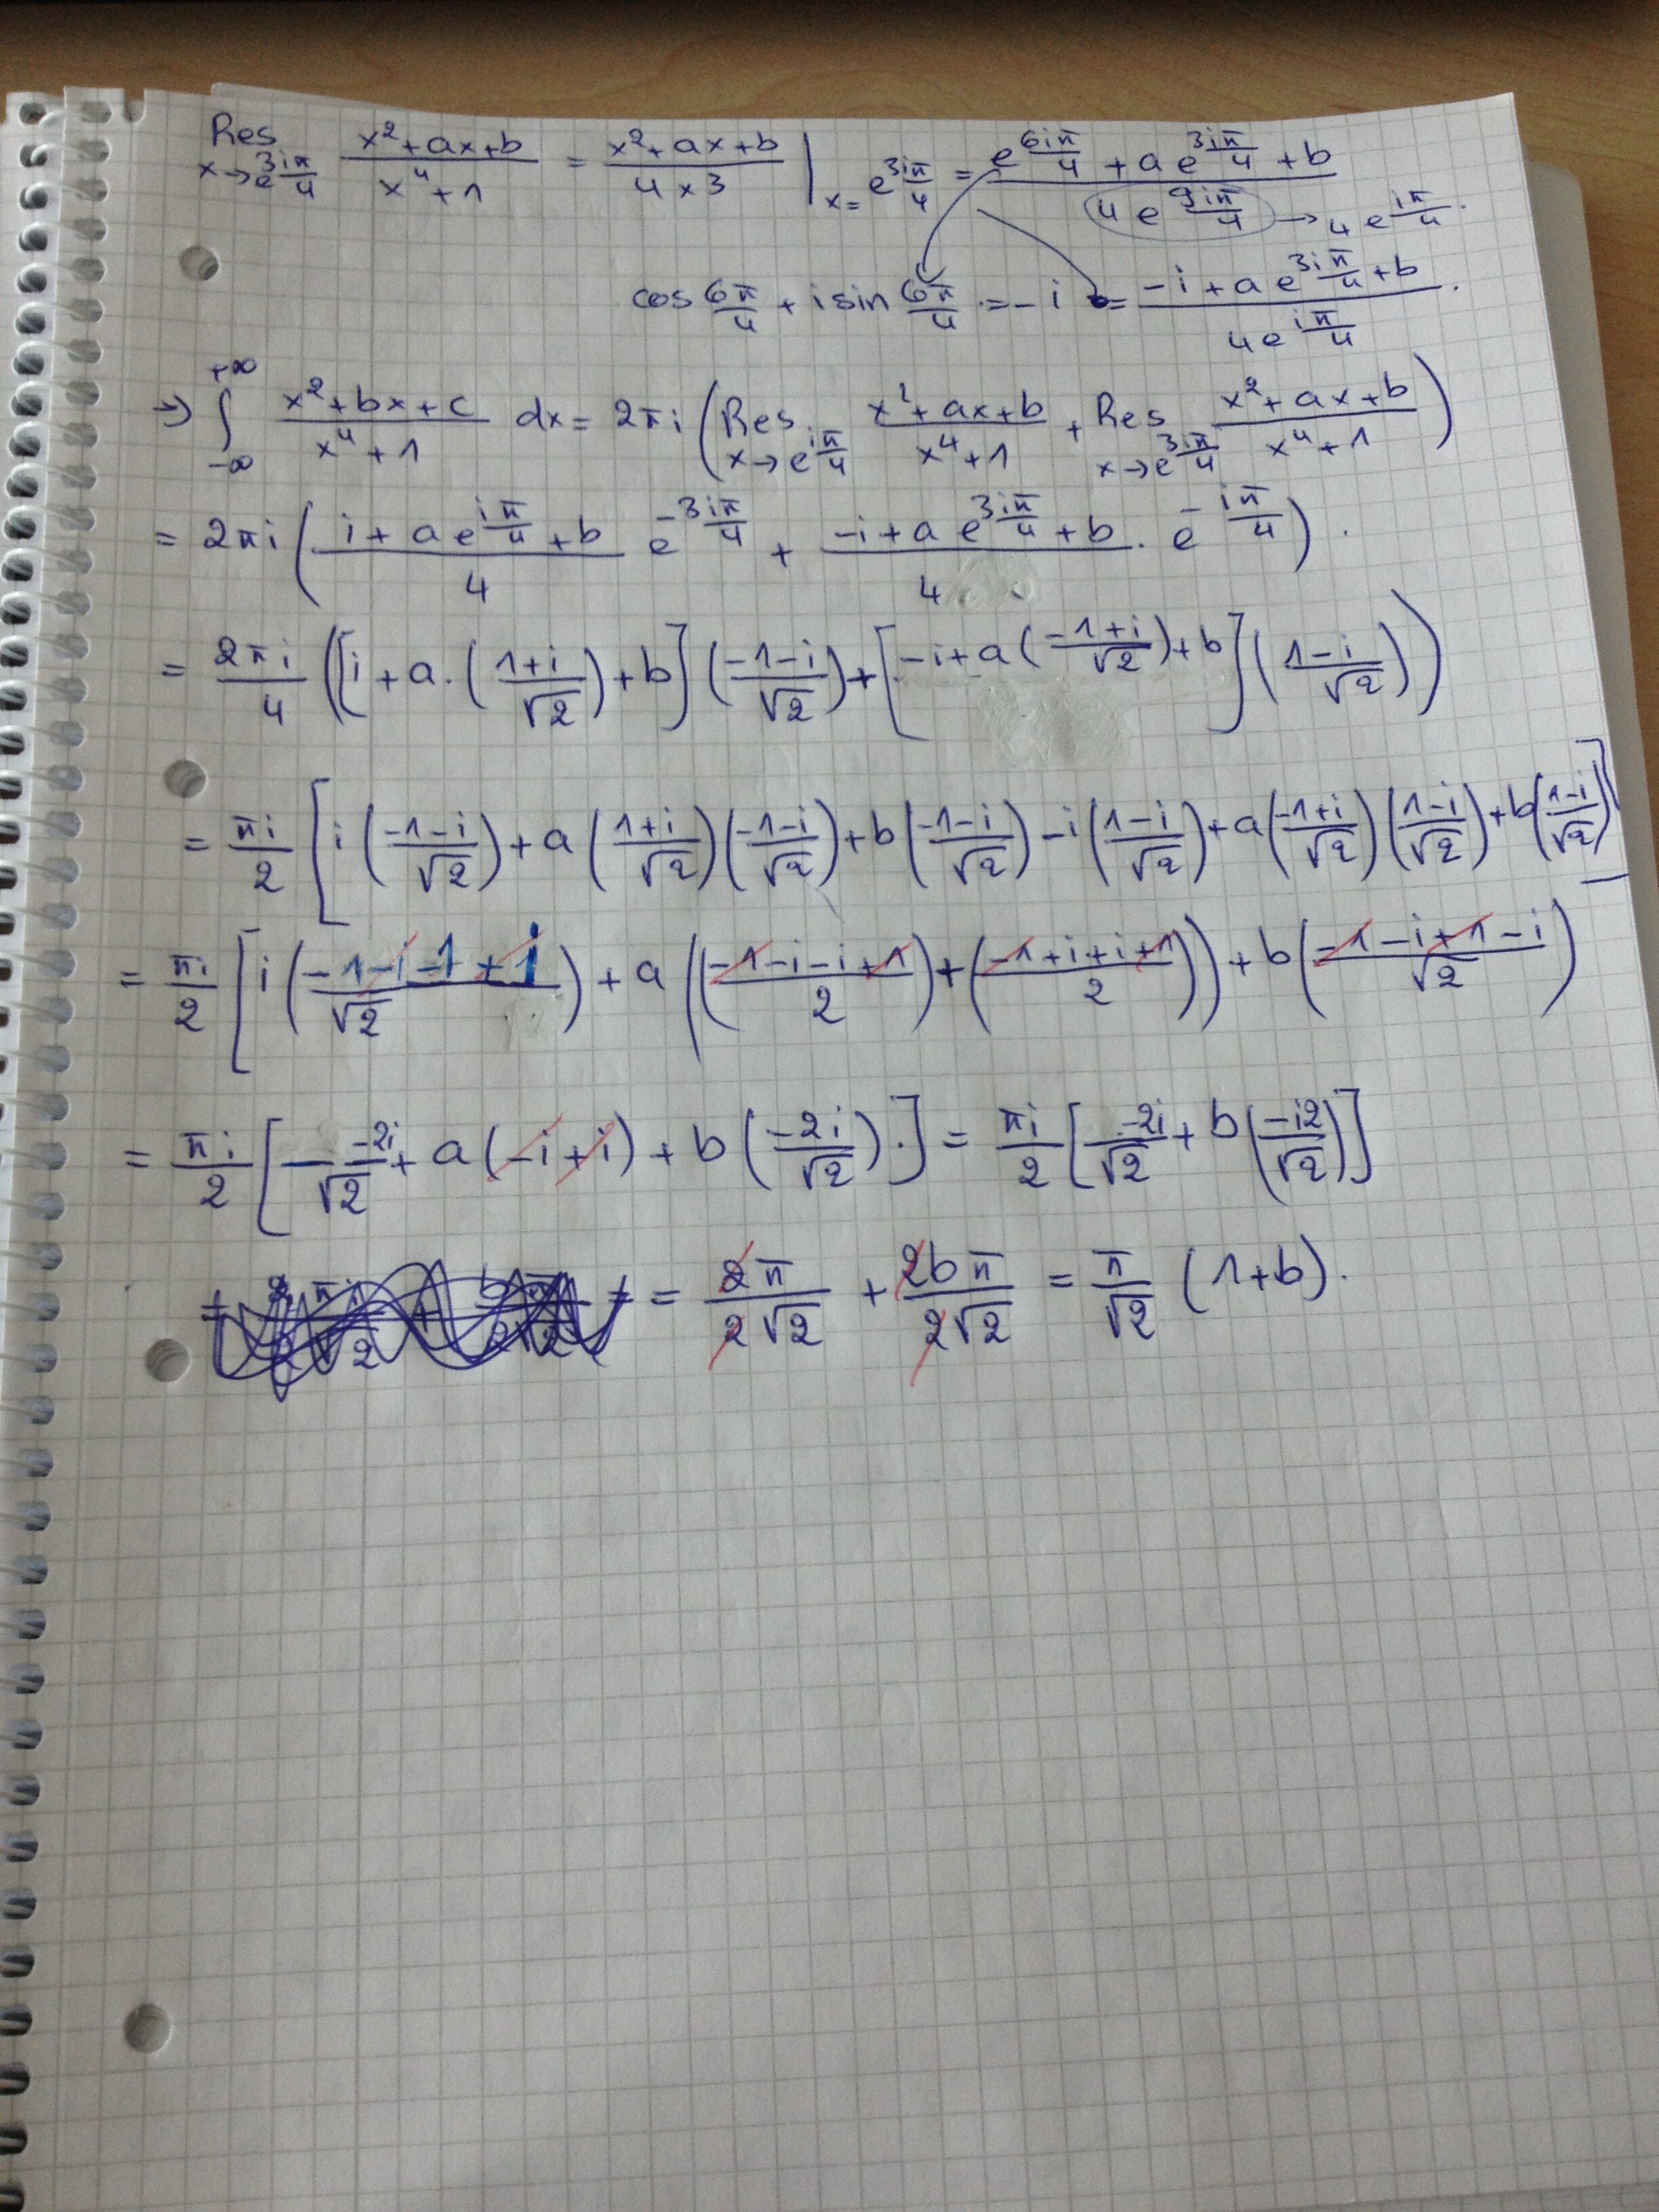 Res_{x→e^{3iπ/4}} (x²+ax+b)/(x⁴+1) = (x²+ax+b)/(4x3) |_{x=e^{3iπ/4}} = (e^{6iπ/4} + a e^{3iπ/4} + b)/(4e^{9iπ/4}) → 4e^{iπ/4}.
cos 6π/4 + i sin 6π/4 = -i = (-i + a e^{3iπ/4} + b)/(4e^{iπ/4}).
→ ∫_{-∞}^{+∞} (x²+bx+c)/(x⁴+1) dx = 2πi (Res_{x→e^{iπ/4}} (x²+ax+b)/(x⁴+1) + Res_{x→e^{3iπ/4}} (x²+ax+b)/(x⁴+1))
= 2πi ((i + a e^{iπ/4} + b)/4 e^{-3iπ/4} + (-i + a e^{3iπ/4} + b)/4 · e^{-iπ/4}).
= 2πi/4 ([i + a·((1+i)/√2) + b]((-1-i)/√2) + [-i + a((-1+i)/√2) + b]((1-i)/√2))
= πi/2 [i((-1-i)/√2) + a((1+i)/√2)((-1-i)/√2) + b((-1-i)/√2) - i((1-i)/√2) + a((-1+i)/√2)((1-i)/√2) + b((1-i)/√2)]
= πi/2 [i((-1-i-1+i)/√2) + a(((-1-i-i+1)/2) + ((-1+i+i+1)/2)) + b((-1-i+1-i)/√2)
= πi/2 [-2i/√2 + a(-i+i) + b(-2i/√2).] = πi/2 [-2i/√2 + b(-i2/√2)]
= 2π/(2√2) + 2bπ/(2√2) = π/√2 (1+b).